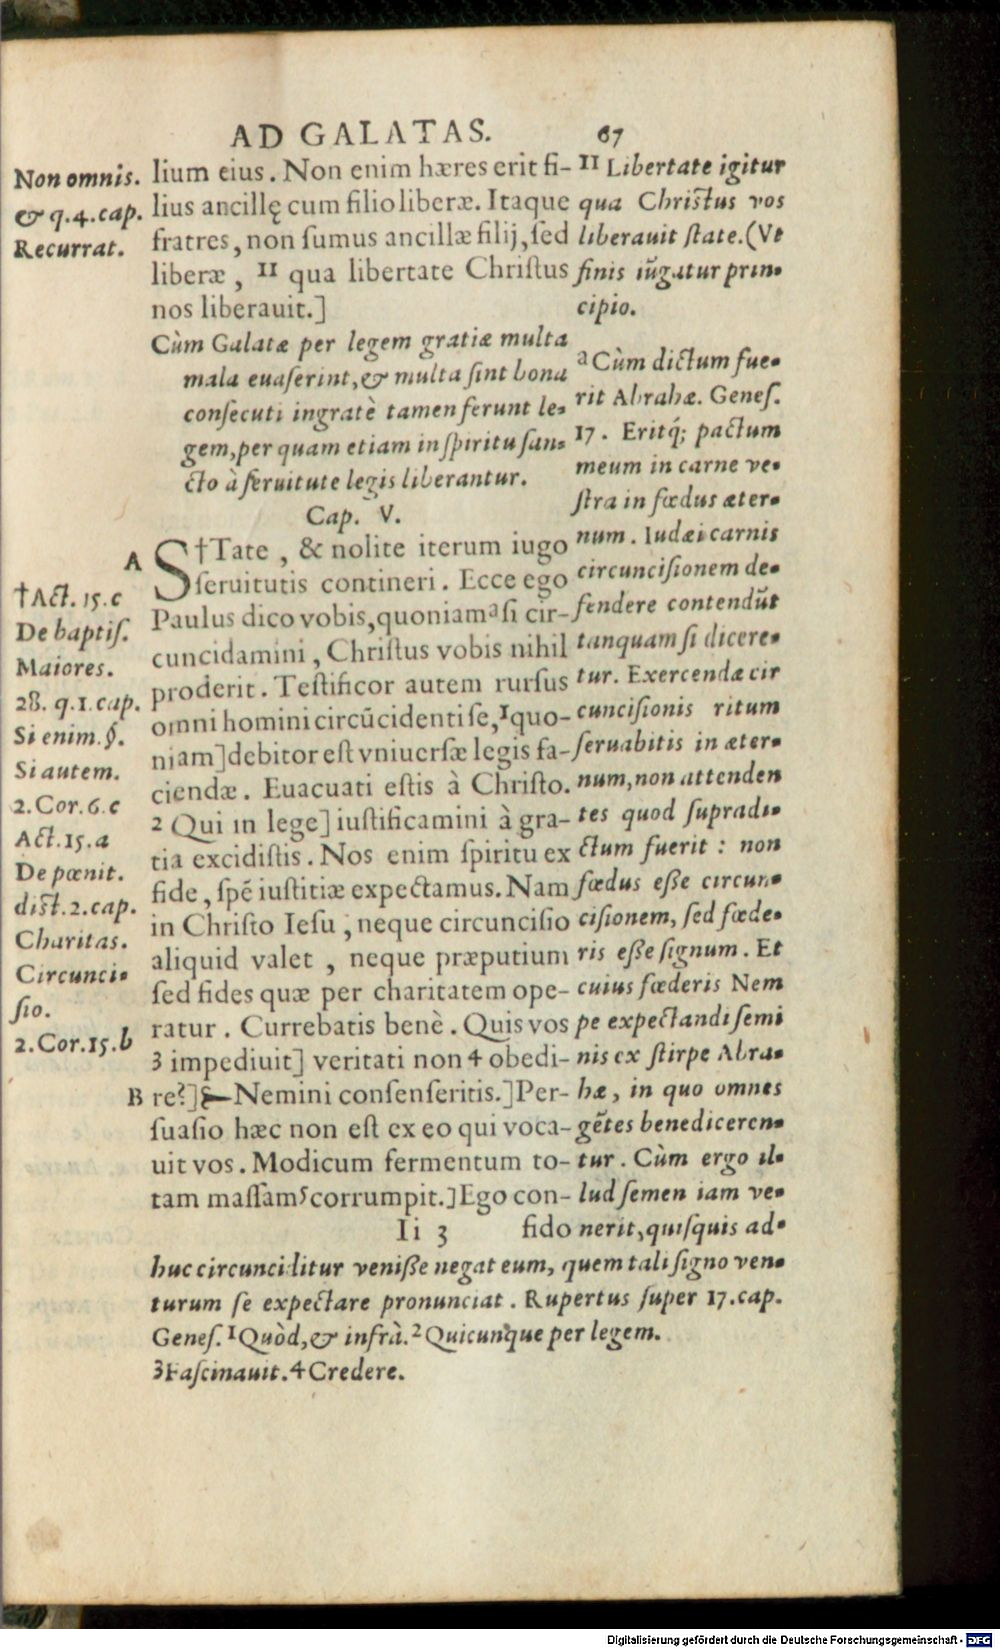 AD GALATAS. 67
Non omnis.
& q.4.cap.
Recurrat.
lium eius. Non enim hæres erit fi-
lius ancillę cum filio liberæ. Itaque
fratres, non ſumus ancillæ filij, ſed
liberæ, 11 qua libertate Chriſtus
nos liberauit.]
Cùm Galatæ per legem gratiæ multa
mala euaſerint, & multa ſint bona
conſecuti ingratè tamen ferunt le-
gem, per quam etiam in ſpiritu ſan-
cto à ſeruitute legis liberantur.
Cap. V.
A
S†Tate, & nolite iterum iugo
ſeruitutis contineri. Ecce ego
Paulus dico vobis, quoniam a ſi cir-
cuncidamini, Chriſtus vobis nihil
proderit. Teſtificor autem rurſus
omni homini circūcidenti ſe, 1 quo-
niam] debitor eſt vniuerſæ legis fa-
ciendæ. Euacuati eſtis à Chriſto.
2 Qui in lege] iuſtificamini à gra-
tia excidiſtis. Nos enim ſpiritu ex
fide, ſpē iuſtitiæ expectamus. Nam
in Chriſto Ieſu, neque circunciſio
aliquid valet, neque præputium
ſed fides quæ per charitatem ope-
ratur. Currebatis benè. Quis vos
3 impediuit] veritati non 4 obedi-
B re?] Nemini conſenſeritis.] Per-
ſuaſio hæc non eſt ex eo qui voca-
uit vos. Modicum fermentum to-
tam maſſam 5 corrumpit.] Ego con-
Ii 3 fido
†Act. 15.c
De baptiſ.
Maiores.
28. q.1.cap.
Si enim.§.
Si autem.
2.Cor.6.c
Act.15.a
De pœnit.
diſt.2.cap.
Charitas.
Circunci-
ſio.
2.Cor.15.b
11 Libertate igitur
qua Chriſtus vos
liberauit ſtate.(Vt
finis iūgatur prin-
cipio.
a Cùm dictum fue-
rit Abrahæ. Geneſ.
17. Eritq́; pactum
meum in carne ve-
ſtra in fœdus æter-
num. Iudæi carnis
circunciſionem de-
fendere contendūt
tanquam ſi dicere-
tur. Exercendæ cir
cunciſionis ritum
ſeruabitis in æter-
num, non attenden
tes quod ſupradi-
ctum fuerit: non
fœdus eſſe circun-
ciſionem, ſed fœde-
ris eſſe ſignum. Et
cuius fœderis Nem
pe expectandi ſemi
nis ex ſtirpe Abra-
hæ, in quo omnes
gētes benediceren-
tur. Cùm ergo il-
lud ſemen iam ve-
nerit, quiſquis ad-
huc circunciditur veniſſe negat eum, quem tali ſigno ven-
turum ſe expectare pronunciat. Rupertus ſuper 17.cap.
Geneſ. 1 Quòd, & infrà. 2 Quicunque per legem.
3 Faſcinauit. 4 Credere.
Digitalisierung gefördert durch die Deutsche Forschungsgemeinschaft - DFG